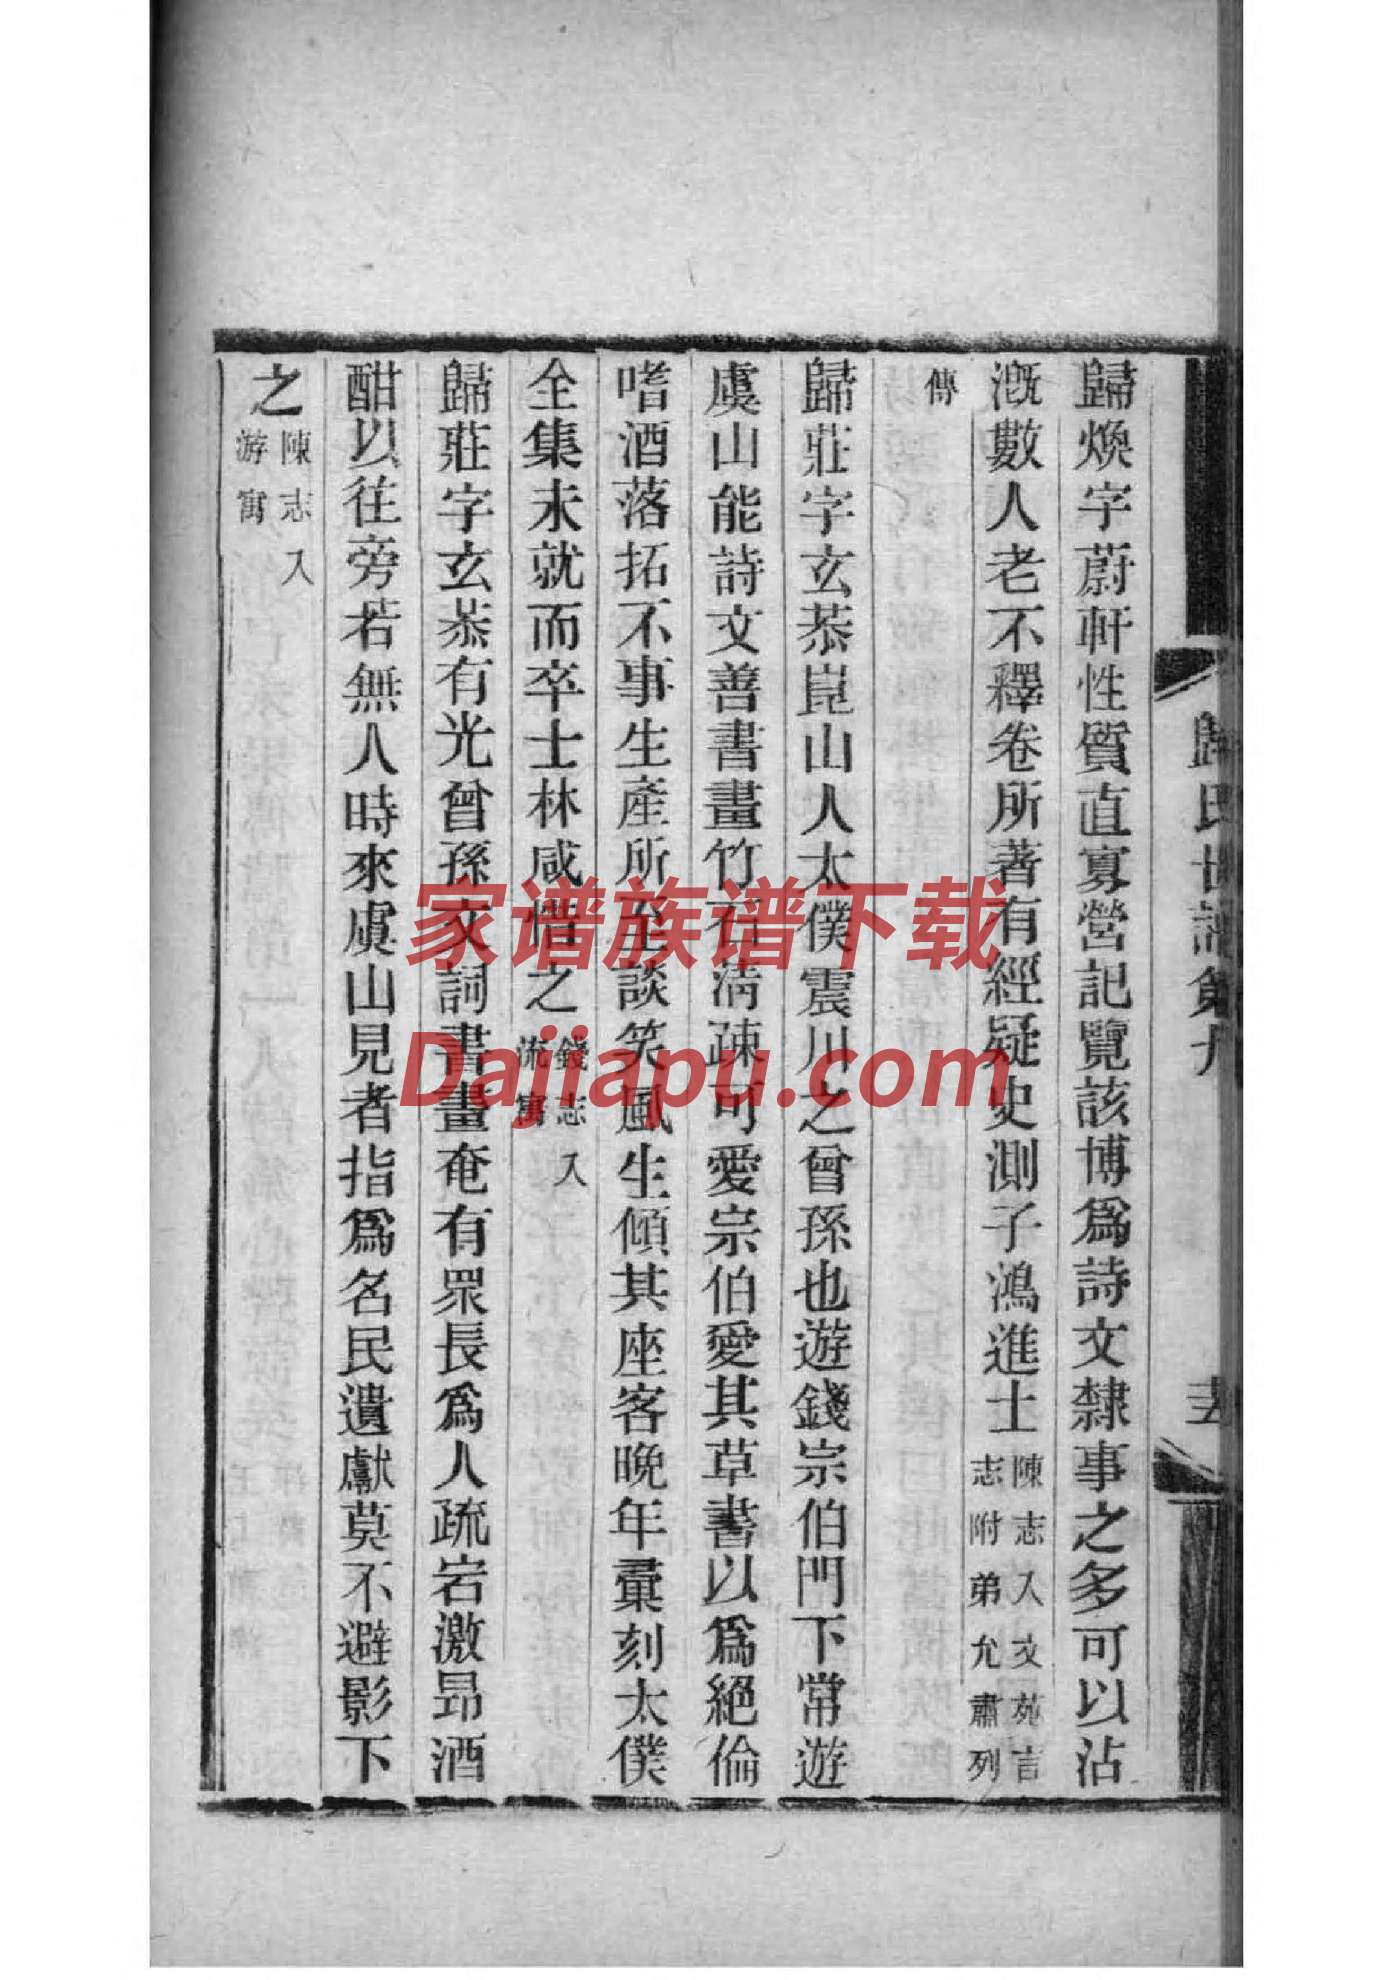 歸煥字蔚軒性質直寡營記覽該博爲詩文隸事之多可以沾
漑數人老不釋卷所著有經疑史測子鴻進士陳志入文苑言
志附弟允肅列
傳
歸莊字玄恭崑山人太僕震川之曾孫也遊錢宗伯門下常遊
虞山能詩文善書畫竹石清疎可愛宗伯愛其草書以爲絕倫
嗜酒落拓不事生產所至談笑風生傾其座客晚年彙刻太僕
全集未就而卒士林咸惜之錢志入
流寓
歸莊字玄恭有光曾孫文詞書畫奄有眾長爲人疏宕激昂酒
酣以往旁若無人時來虞山見者指爲名民遺獻莫不避影下
之陳志入
游寓
歸氏世譜第九
家谱族谱下载
Dajiapu.com